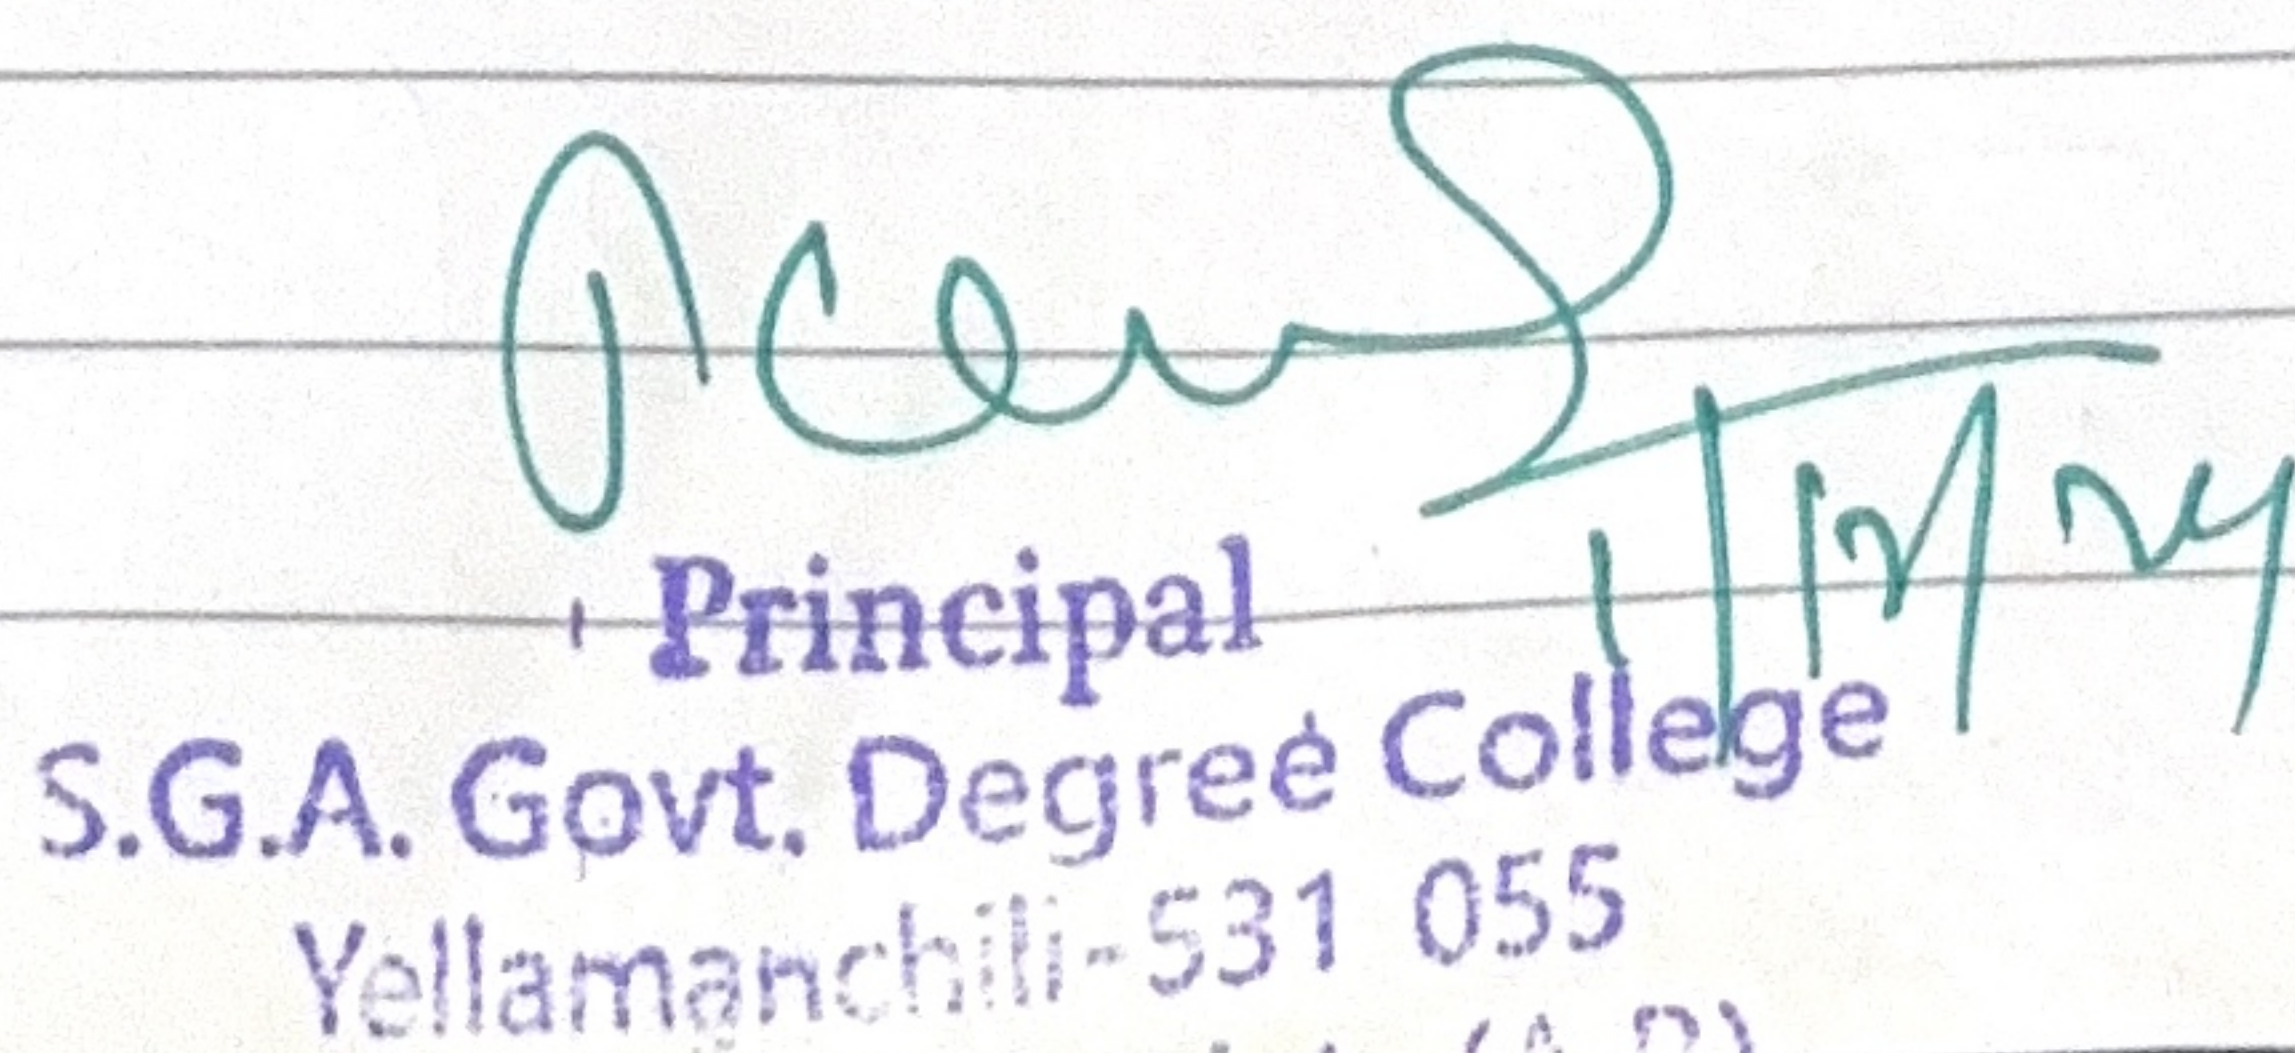 1/12/24
Principal
S.G.A. Govt. Degree College
Yellamanchili-531 055